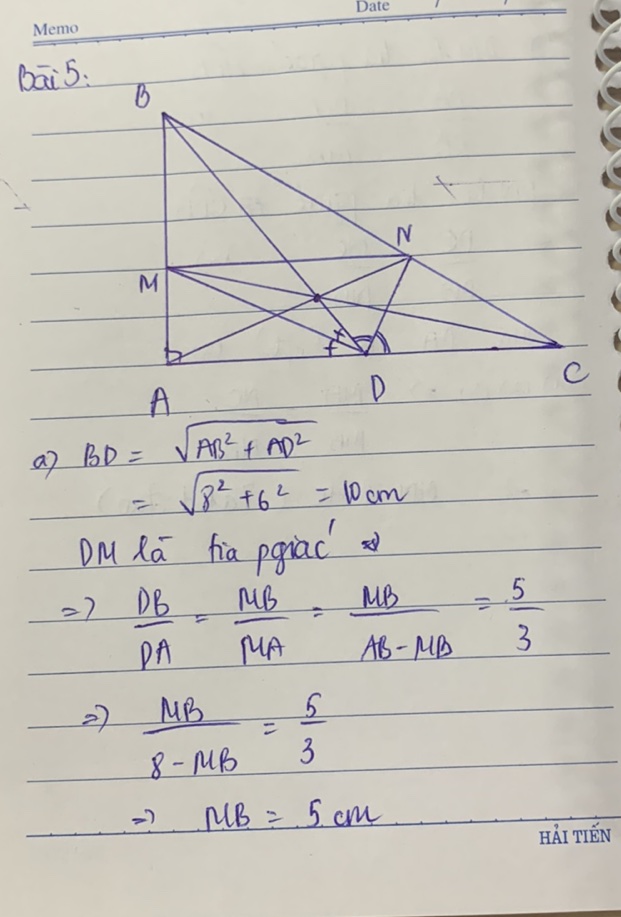 Memo
Date
Bài 5:
B
N
M
A
D
C
a) BD = √(AB² + AD²)
= √(8² + 6²) = 10 cm
DM là tia pgiác
=> DB/DA = MB/MA = MB/(AB - MB) = 5/3
=> MB/(8 - MB) = 5/3
=> MB = 5 cm
HẢI TIẾN